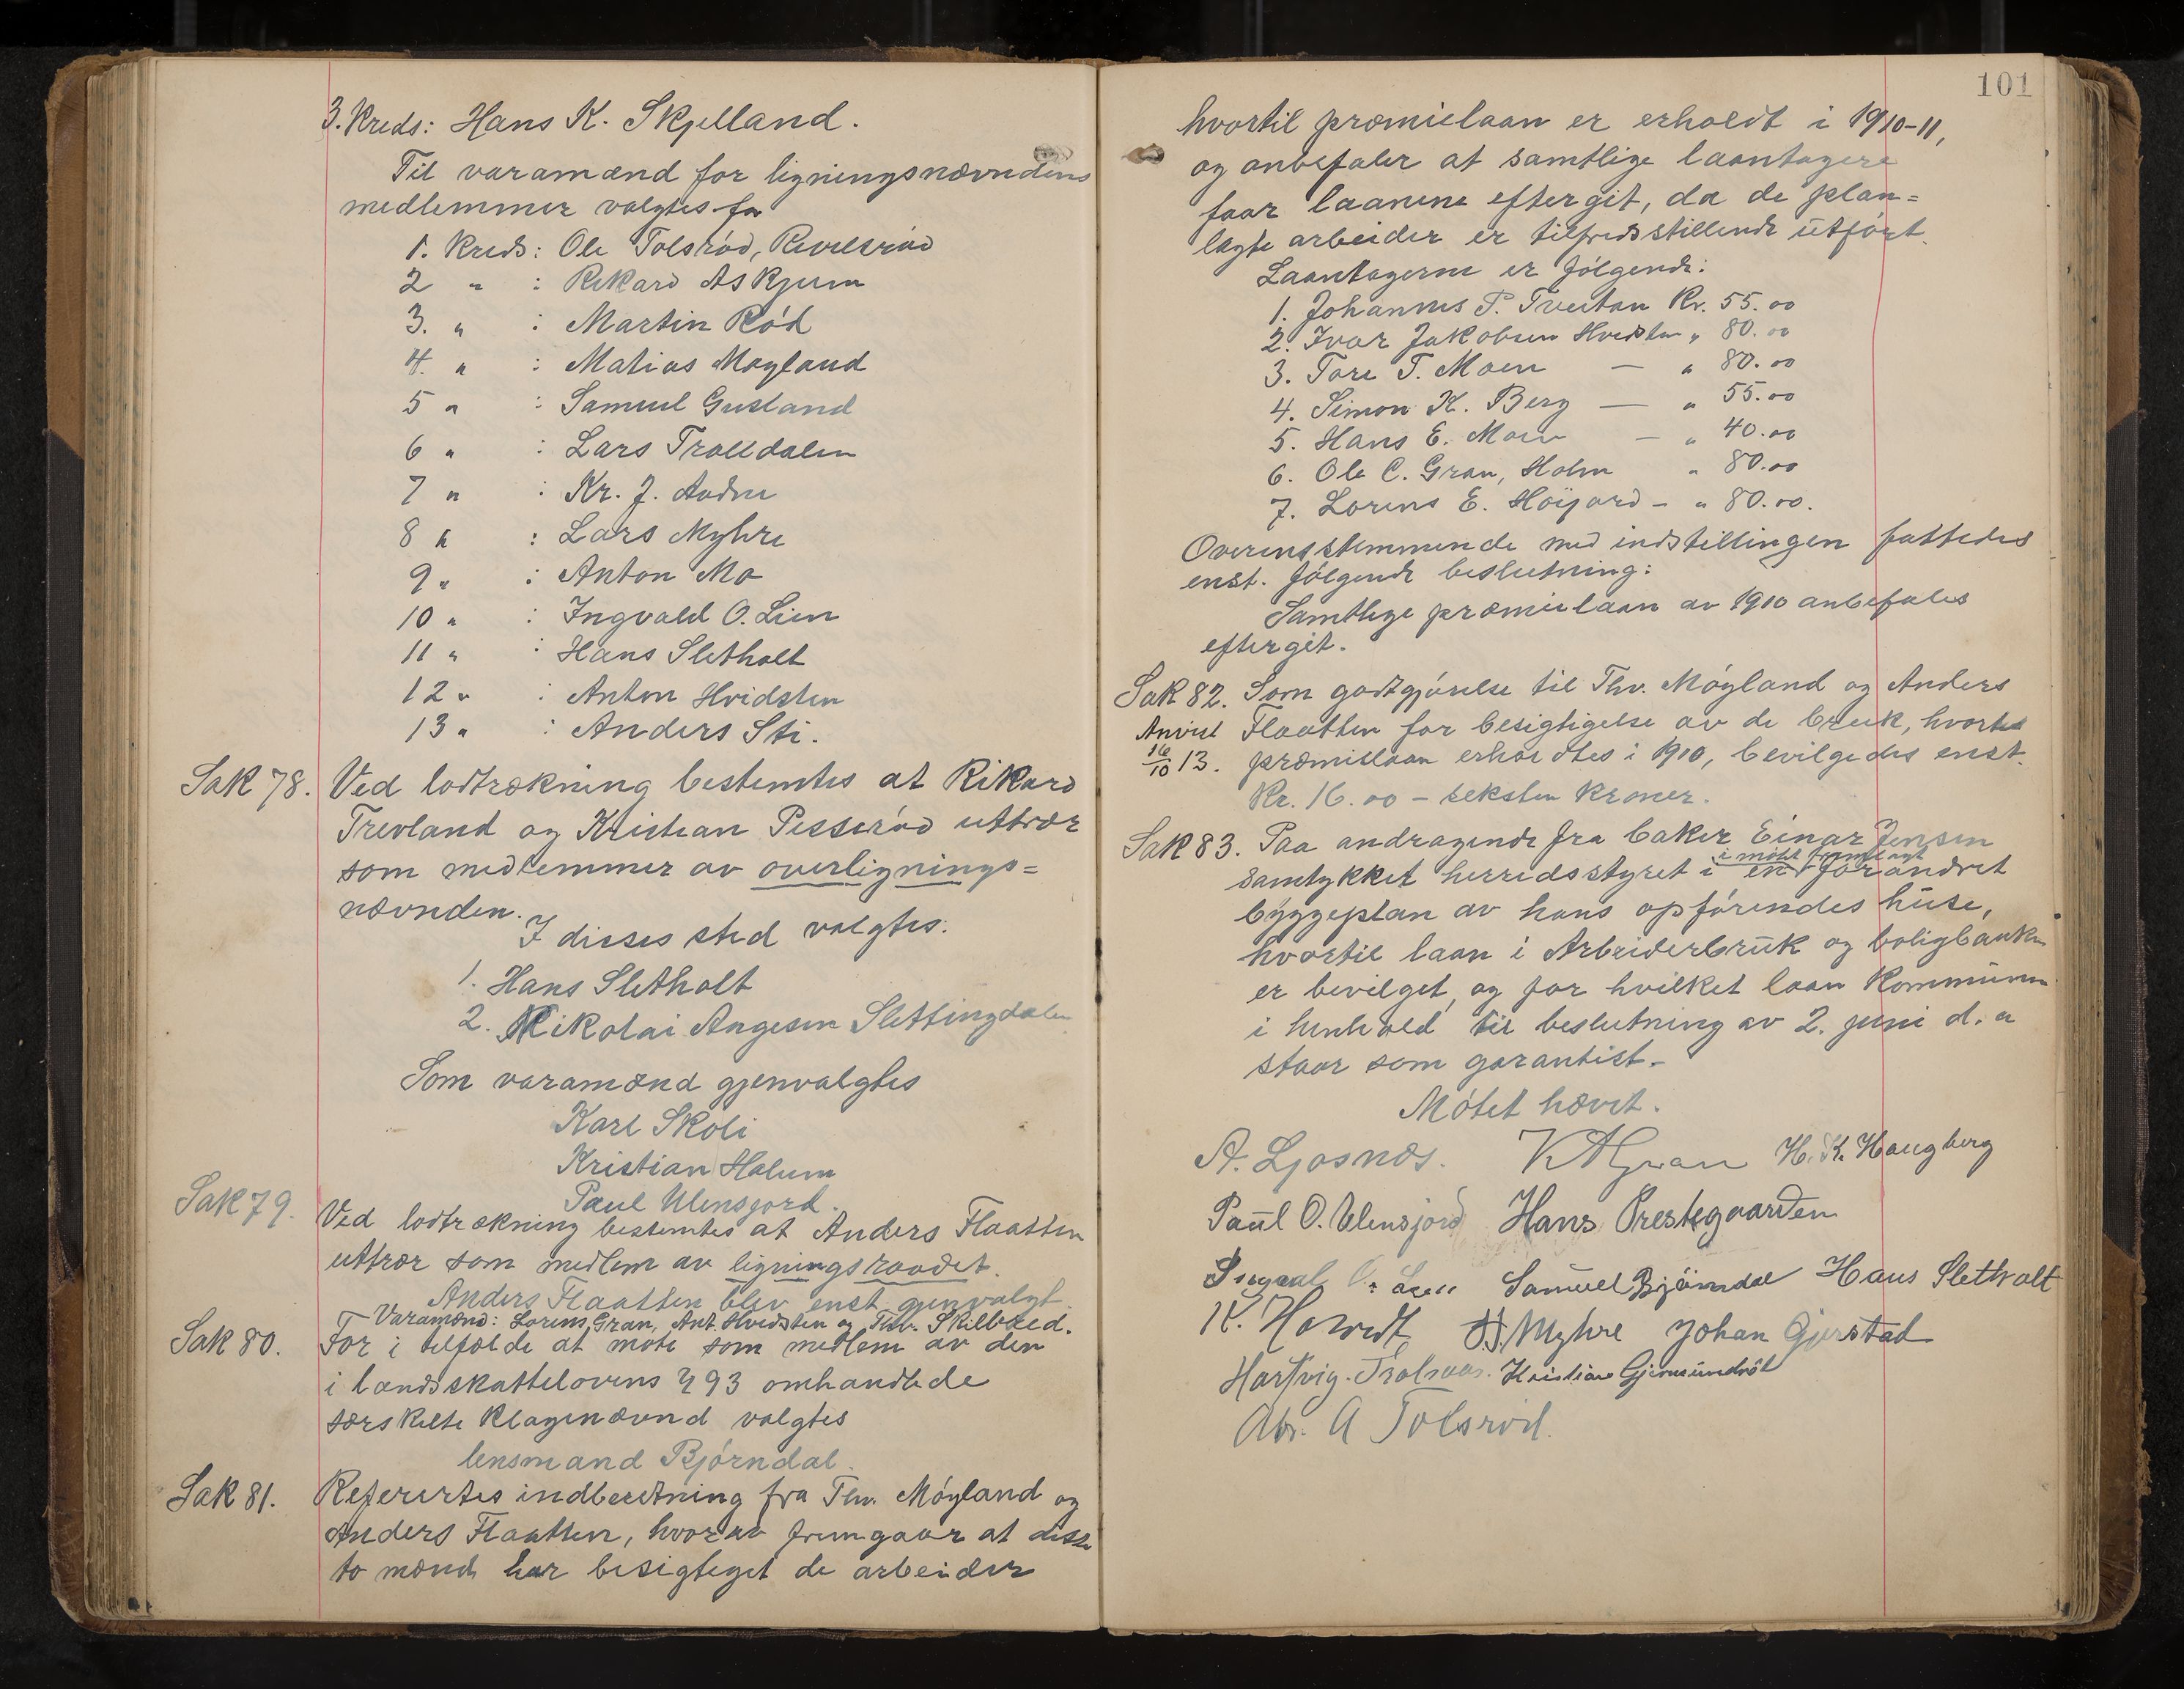 3. Kreds: Hans K. Skjelland.
Til varamænd for ligningsnævndens
medlemmer valgtes for
1. Kreds: Ole Tolsrød, Revelsrød
2 " : Rikard Askjum
3. " : Martin Rød
4. " : Matias Møyland
5 " : Samuel Gusland
6 " : Lars Trolldalen
7 " : Kr. J. Aadne
8 " : Lars Myhre
9 " : Anton Mo
10 " : Ingvald O. Lien
11 " : Hans Sletholt
12 " : Anton Hvidsten
13 " : Anders Sti.
Sak 78. Ved lodtrækning bestemtes at Rikard
Trevland og Kristian Pisserød uttrær
som medlemmer av overlignings=
nævnden.
I disses sted valgtes:
1. Hans Sletholt
2. Nikolai Angesen Slettingdalen
Som varamænd gjenvalgtes
Karl Skoli
Kristian Holum
Paul Ulensjord.
Sak 79. Ved lodtrækning bestemtes at Anders Flaatten
uttrær som medlem av ligningsraadet.
Anders Flaatten blev enst. gjenvalgt.
Varamænd: Lorens Gran, Ant. Hvidsten og Thv. Skilbred.
Sak 80. For i tilfælde at møte som medlem av den
i landsskattelovens § 93 omhandlede
særskilte klagenævnd valgtes
lensmand Bjørndal.
Sak 81. Refererertes indberetning fra Thv. Møyland og
Anders Flaatten, hvorav fremgaar at disse
to mænd har besigtiget de arbeider
101
hvortil præmielaan er erholdt i 1910-11,
og anbefaler at samtlige laantagere
faar laanene eftergit, da de plan=
lagte arbeider er tilfredsstillende utført.
Laantagerne er følgende:
1. Johannes P. Tveitan Kr. 55.00
2. Ivar Jakobsen Hvidsten " 80.00
3. Tore T. Moen — " 80.00
4. Simon K. Berg — " 55.00
5. Hans E. Moen — " 40.00
6. Ole C. Gran, Holm " 80.00
7. Lorens E. Høijord - " 80.00.
Overensstemmende med indstillingen fattedes
enst. følgende beslutning:
Samtlige præmielaan av 1910 anbefales
eftergit.
Sak 82. Som godtgjørelse til Thv. Møyland og Anders
Anvist Flaatten for besigtigelse av de bruk, hvortil
16/10 13. præmielaan erholdtes i 1910, bevilgedes enst.
Kr. 16.00 - seksten kroner.
Sak 83. Paa andragende fra baker Einar Jensen
i møtet fremlagt
samtykket herredsstyret i en forandret
byggeplan av hans opførendes huse,
hvortil laan i Arbeiderbruk og boligbanken
er bevilget, og for hvilket laan kommunen
i henhold til beslutning av 2. juni d. a
staar som garantist.
Møtet hævet.
A. Ljosnæs. K A Gran H. K. Haugberg
Paul O. Ulensjord Hans Prestegaarden
Ingvald O. Lien Samuel Bjørndal Hans Sletholt
K. Horntvedt Myhre Johan Gjerstad
Hartvig Kristian Gjermundrød
Abr. A Tolsrød.